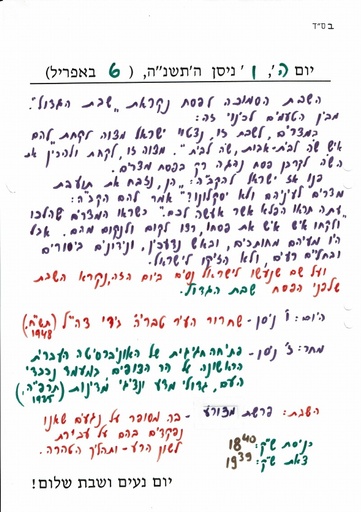 בס"ד
יום ה', ו' ניסן ה'תשנ"ה, (6 באפריל)
השבת הסמוכה לפסח נקראת "שבת הגדול".
מבין הטעמים לכינוי זה:
במצרים, לשבת זו, נצטוו ישראל מצוה לקחת "להם
איש שה לבית-אבות, שה לבית". מצוה זו, לקחת ולהכין את
השה לקרבן פסח נהגה רק בפסח מצרים.
פנו אז ישראל להקב"ה: "הן נזבח את תועבת
מצרים לעיניהם ולא יסקלונו?" אמר להם הקב"ה:
"עתה תראו הפלא אשר אעשה לכם". כשראו המצרים שהלכו
ולקחו איש איש את פסחו, רצו לקום ולנקום מהם. אבל
היו מעיהם מחותכים, ובאש נדעכין, ונידונים ביסורים
ובחלים רעים, ולא הזיקו לישראל.
ועל שם שנעשו לישראל נסים ביום הזה, נקרא השבת
שלפני הפסח שבת הגדול.
היום: ו' ניסן - שחרור העיר טבריה בידי צה"ל (תש"ח, 1948)
מחר: ז' ניסן - פתיחה חגיגית של האוניברסיטה העברית
הראשונה על הר הצופים במעמד נכבדי
העם, גדולי מדע ונציגי מדינות (תרפ"ה, 1925)
השבת: פרשת מצורע - בה מסופר על נגעים שאנו
נפקדים בהם על עבירת
לשון הרע - ותהליך הטהרה.
כניסת ש"ק: 18:40
צאת ש"ק: 19:39
יום נעים ושבת שלום!